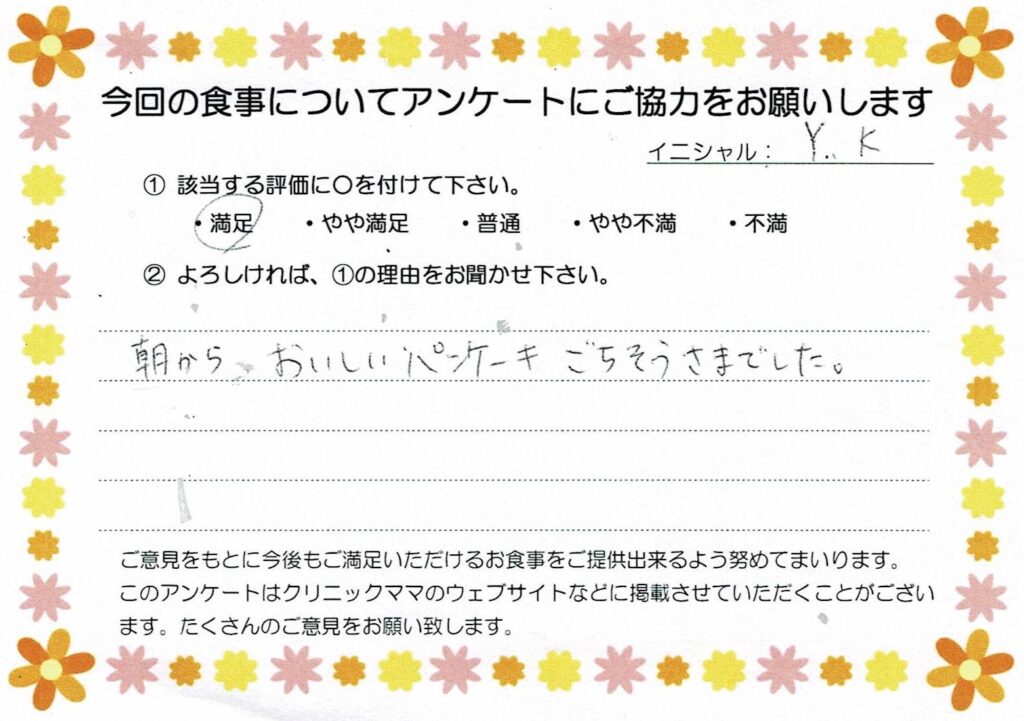 今回の食事についてアンケートにご協力をお願いします
イニシャル： Y. K
① 該当する評価に〇を付けて下さい。
・満足 ・やや満足 ・普通 ・やや不満 ・不満
② よろしければ、①の理由をお聞かせ下さい。
朝から、おいしいパンケーキ ごちそうさまでした。
ご意見をもとに今後もご満足いただけるお食事をご提供出来るよう努めてまいります。
このアンケートはクリニックママのウェブサイトなどに掲載させていただくことがござい
ます。たくさんのご意見をお願い致します。